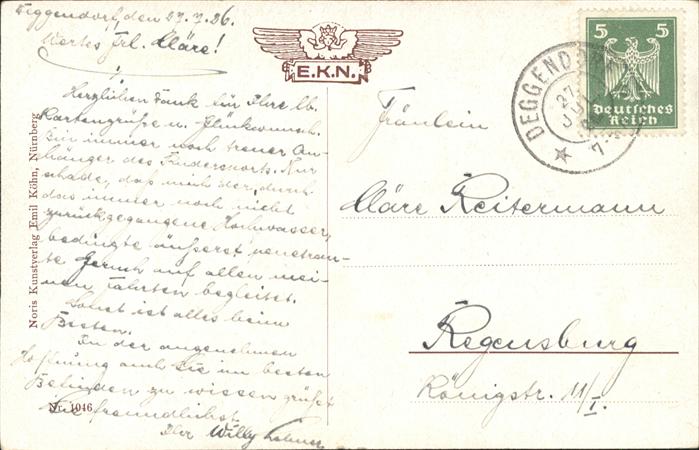 Deggendorf, den 27.7.26.
Wertes Frl. Cläre!
Herzlichen Dank für Ihre lb.
Kartengrüße u. Glückwunsch.
Bin immer noch treuer An-
hänger des Rudersports. Nur
schade, daß mich der, durch
das immer noch nicht
zurückgegangene Hochwasser,
bedingte äußerst penetran-
te Geruch auf allen mei-
nen Fahrten begleitet.
Sonst ist alles beim
Besten.
In der angenehmen
Hoffnung auch Sie im besten
Befinden zu wissen grüßt
Sie freundlichst
Ihr Willy
Noris Kunstverlag Emil Köhn, Nürnberg
Nr. 1046
E.K.N.
5 5
Deutsches
Reich
DEGGENDORF
27
JUL
7-8
Fräulein
Cläre Reitermann
Regensburg
Königstr. 11/I.